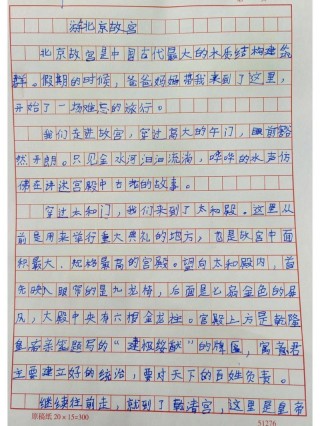 游北京故宫
北京故宫是中国古代最大的木质结构建筑
群。假期的时候,爸爸妈妈带我来到了这里,
开始了一场难忘的旅行。
我们走进故宫,穿过高大的午门,眼前豁
然开朗。只见金水河汩汩流淌,哗哗的水声仿
佛在诉说宫殿中古老的故事。
穿过太和门,我们来到了太和殿。这里从
前是用来举行重大典礼的地方,也是故宫中面
积最大、规格最高的宫殿。望向太和殿内,首
先映入眼帘的是九龙椅,后面是七扇金色的屏
风,大殿中央有六根金龙柱。宫殿上方是乾隆
皇帝亲笔题写的“建极绥猷”的牌匾,寓意君
主要建立好的统治,要对天下的百姓负责。
继续往前走,就到了乾清宫,这里是皇帝
原稿纸 20×15=300
51276